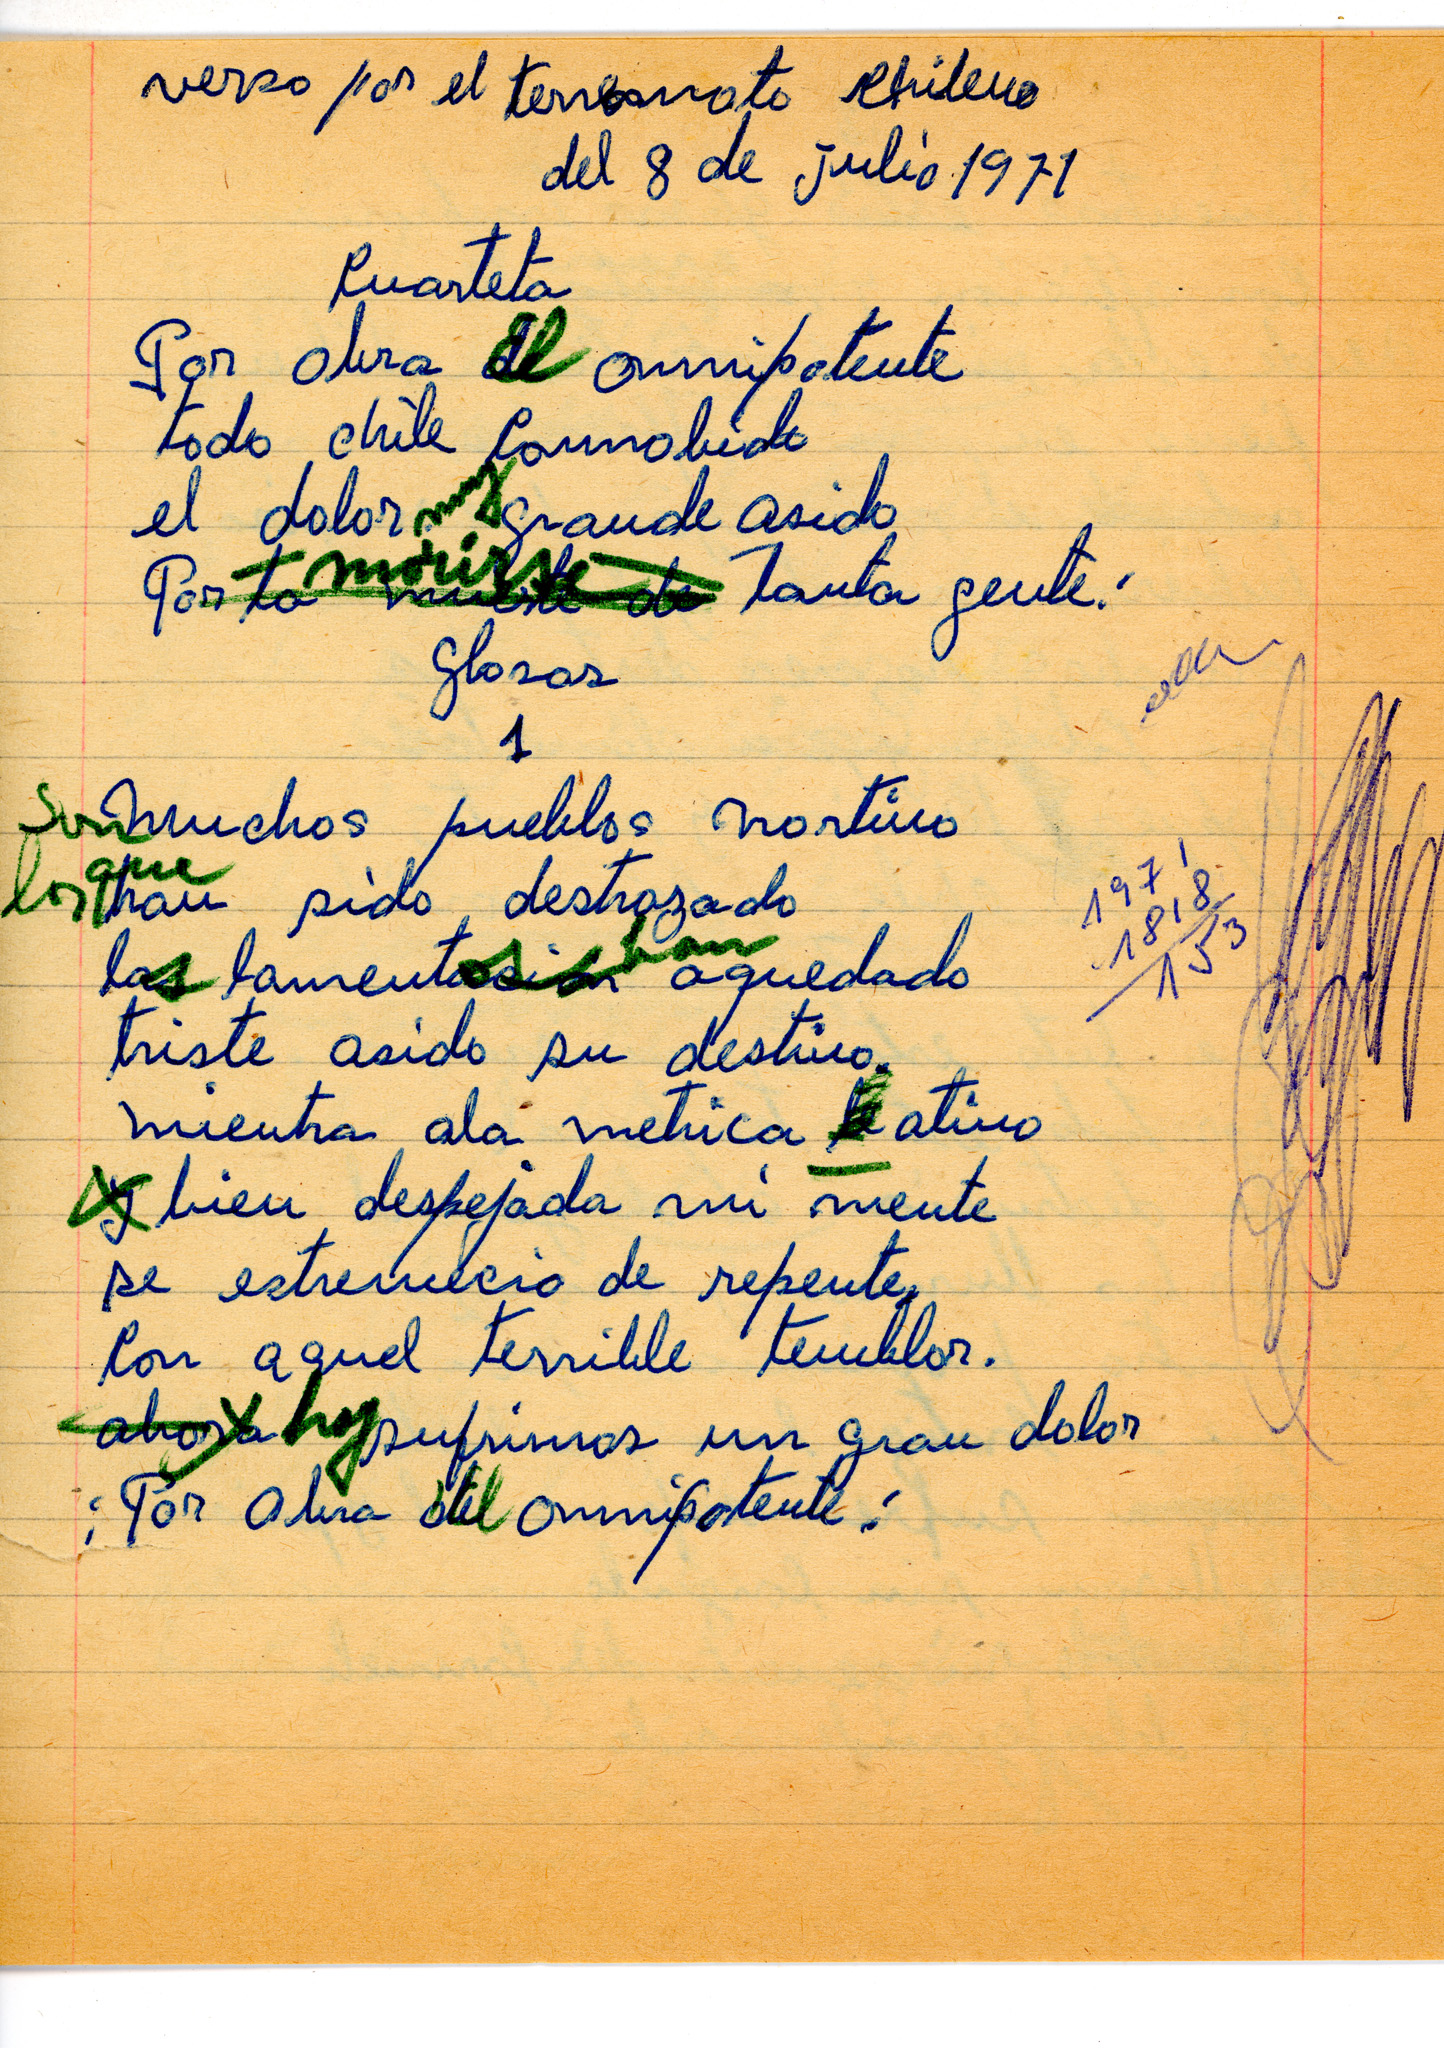 verso por el terremoto chileno
del 8 de julio 1971
Cuarteta
Por obra del omnipotente
todo chile conmobido
el dolor muy grande asido
Por la muerte de morirse tanta gente!
glosas
1
Son muchos pueblos nortino
los que han sido destrozado
las lamentacion han aquedado
triste asido su destino.
mientra ala metrica atino
y bien despejada mi mente
se estremecio de repente,
Con aquel terrible temblor.
ahora hoy sufrimos un gran dolor
¡Por obra del omnipotente!
1971
1818
153